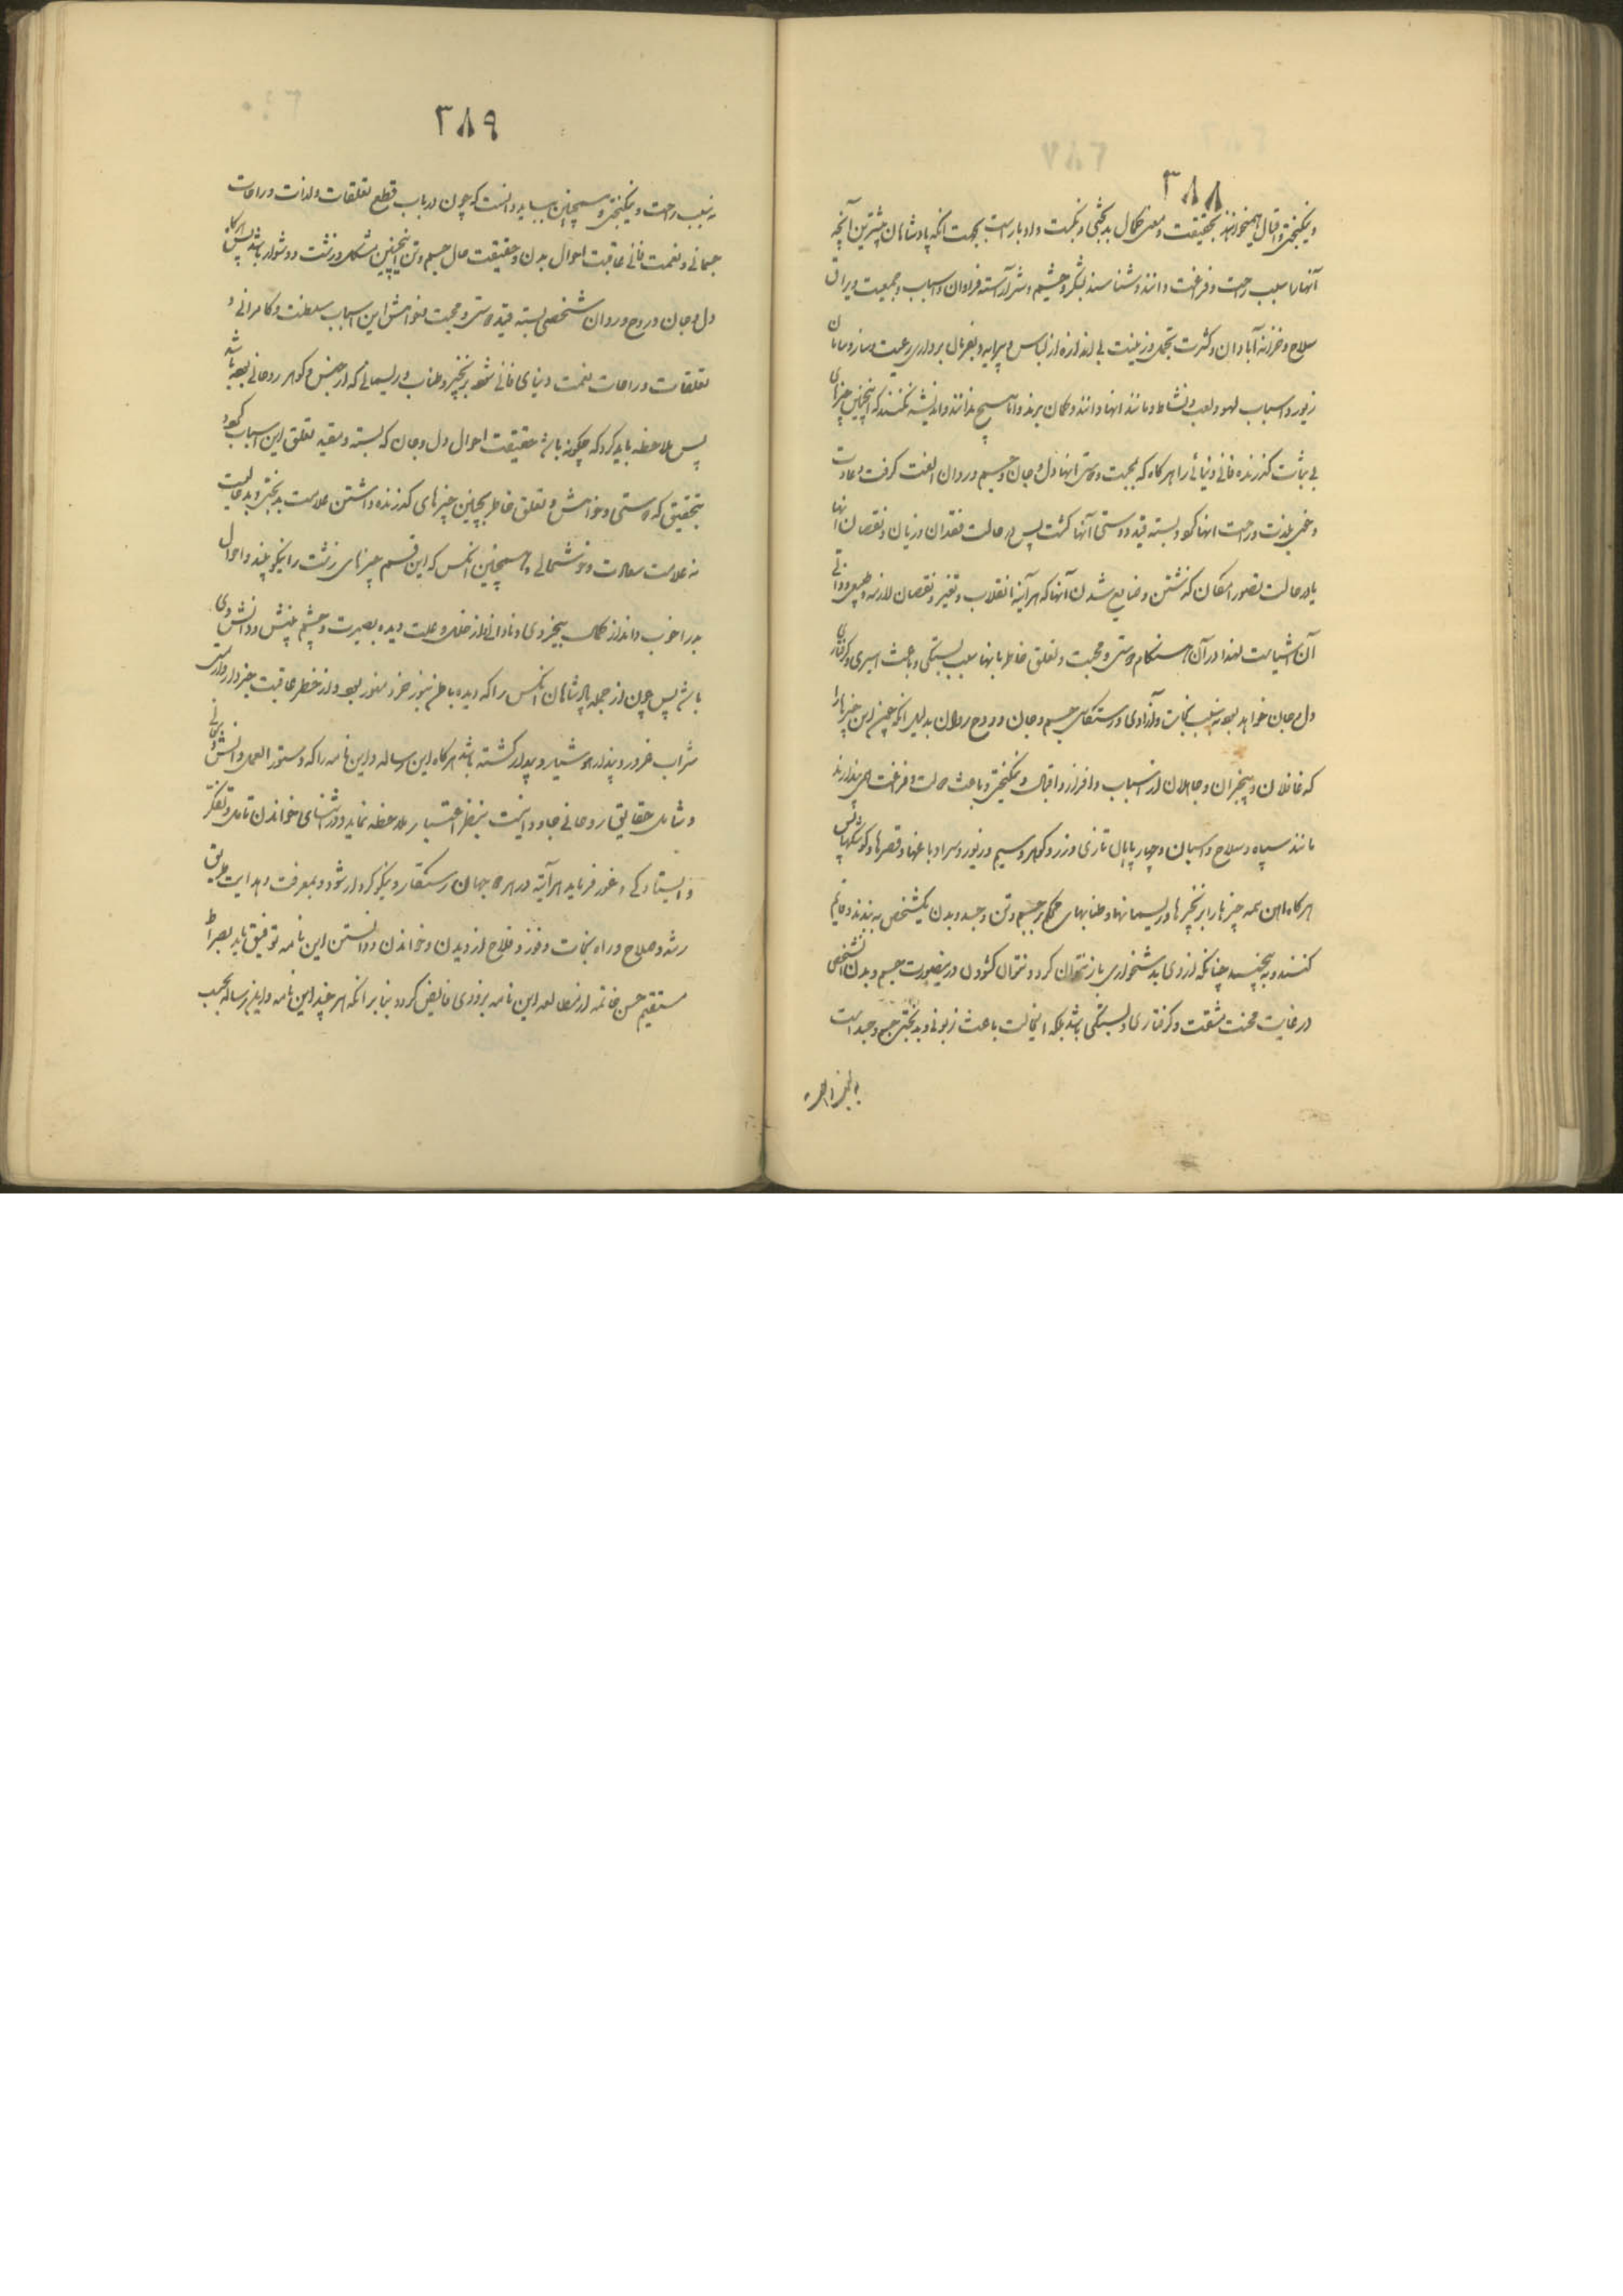 ۳۸۸
و نیکبختی و اقبال همیخوانند بحقیقت و معنی کمال بدبختی و نکبت و ادبار است بجهت آنکه پادشاهان بیشترین آنچه
آنها را سبب راحت و فراغت دانند و شناسند لشکر و حشم و آراسته فراوان و اسباب و جمعیت و یراق
سلاح و خزانه آبادان و کثرت تجمل و زینت بی اندازه از لباس و پیرایه و بفرمان برداری رعیت و ساز و سامان
زیور و اسباب لهو و لعب و نشاط و مانند اینها دانند و گمان برند و اما هیچ ندانند و اندیشه نکنند که اینچنین چیزهای
بی ثبات گذرنده فانی دنیائی را هر گاه که بمحبت و دوستی اینها دل و جان و جسم و روان الفت گرفت و عادت
و خوی بلذت و راحت اینها کرد و بسته قید دوستی آنها گشت پس در حالت فقدان و زیان و نقصان اینها
یا در حالت تصور امکان گذشتن و ضایع شدن آنها که هر آینه انقلاب و تغیر و نقصان لازمه و طبیعی و ذاتی
آن اشیاست لهذا در آن هنگام دوستی و محبت و تعلق خاطر بانها سبب بستگی و باعث اسیری و گرفتاری
دل و جان خواهد بود نه سبب نجات و آزادی و رستگاری جسم و جان و روح و روان بدلیل آنکه همین این چیزها را
که غافلان و بیخبران و جاهلان از اسباب و افزار و اقبال و نیکبختی و باعث راحت و فراغت همی پندارند
مانند سپاه و سلاح و اسبان و چهارپایان تازی و زر و گوهر و سیم و زیور و سرا و باغها و قصرها و کوشکها پس
هر گاه این همه چیزها را بزنجیرها و ریسمانها و طنابهای محکم بر جسم و تن و جسد و بدن یکشخص به بندند و قایم
کنند و به پیچند چنانکه از وی بدشخواری باز نتوان کرد و نتوان گشودن درینصورت جسم و بدن آنشخص
در غایت محنت و مشقت و گرفتاری و بستگی باشد بلکه اینحالت باعث زبونی و بدبختی جسم و جسد است
۳۸۹
نه سبب راحت و نیکبختی و همچنین بباید دانست که چون در باب قطع تعلقات و لذات و راحات
جسمانی و نعمت فانی عاقبت احوال بدن و حقیقت حال جسم و تن اینچنین مشکل و زشت و دشوار باشد پس هر گاه
دل و جان و روح و روان شخصی بسته قید دوستی و محبت و خواهش این اسباب سلطنت و کامرانی و
تعلقات و راحات نعمت دنیای فانی شود بزنجیر و طناب و ریسمانی که از جنس و گوهر روحانی بوده باشد
پس ملاحظه باید کرد که چگونه باشد حقیقت احوال دل و جان که بسته و مقید تعلق این اسباب گردد
بتحقیق که دوستی و خواهش و تعلق خاطر بچنین چیزهای گذرنده داشتن علامت بدبختی و بدعاقبت
نه علامت سعادت و خوشحالی و همچنین آنکس که این قسم چیزهای زشت را نیکو بیند و احوال
بد را خوب داند از کمال بیخردی و نادانی از خلل و علت دیده بصیرت و چشم بینش و دانش وی
باشد پس چون از جمله پادشاهان آنکس را که دیده باطن بنور خرد منور بود و از خطر عاقبت خبردار و از مستی
شراب غرور و پندار هوشیار و بیدار گشته باشد هر گاه این رساله و این نامه را که دستور العمل دانش
و شامل حقایق روحانی جاودانیست بنظر اعتبار ملاحظه نماید و در اثنای خواندن تامل و تفکر
و ایستادگی و غور فرماید هر آینه در هر دو جهان رستگار و نیکو کردار شود و بمعرفت و هدایت طریق
رشد و صلاح و راه نجات و فوز و فلاح از دیدن و خواندن و دانستن این نامه توفیق یابد بصراط
مستقیم حسن خاتمه از مطالعه این نامه بزودی فایض گردد بنا بر آنکه هر چند این نامه و این رساله بحسب